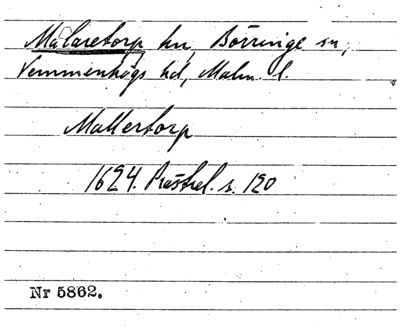 Målaretorp hn, Börringe sn,
Vemmenhögs hd, Malm. l.
Mallertorp
1624. Prästrel. s. 120
Nr 5862.